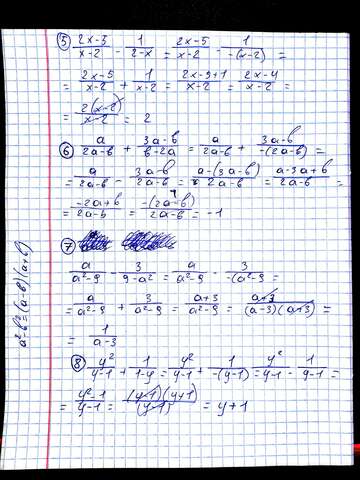 ⑤ (2x-3)/(x-2) - 1/(2-x) = (2x-5)/(x-2) - 1/(-(x-2)) =
= (2x-5)/(x-2) + 1/(x-2) = (2x-5+1)/(x-2) = (2x-4)/(x-2) =
= 2(x-2)/(x-2) = 2
⑥ a/(2a-b) + (3a-b)/(b-2a) = a/(2a-b) + (3a-b)/(-(2a-b)) =
= a/(2a-b) - (3a-b)/(2a-b) = (a-(3a-b))/(2a-b) = (a-3a+b)/(2a-b) =
= (-2a+b)/(2a-b) = -(2a-b)/(2a-b) = -1
⑦
a/(a²-9) - 3/(9-a²) = a/(a²-9) - 3/(-(a²-9)) =
= a/(a²-9) + 3/(a²-9) = (a+3)/(a²-9) = (a+3)/((a-3)(a+3)) =
= 1/(a-3)
⑧ y²/(y-1) + 1/(1-y) = y²/(y-1) + 1/(-(y-1)) = y²/(y-1) - 1/(y-1) =
= (y²-1)/(y-1) = (y-1)(y+1)/(y-1) = y+1
a²-b²=(a-b)(a+b)